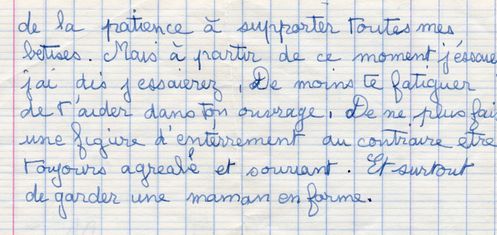 de la patience à supporter toutes mes
betises. Mais à partir de ce moment j'éssaie
j'ai dis j'essaierez, De moins te fatiguer
de t'aider dans ton ouvrage. De ne plus fai
une figure d'entèrrement au contraire etre
toujours agreable et souriant. Et surtout
de garder une maman en forme.